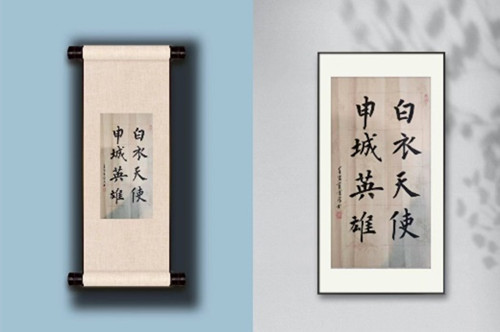 白衣天使
申城英雄
白衣天使
申城英雄